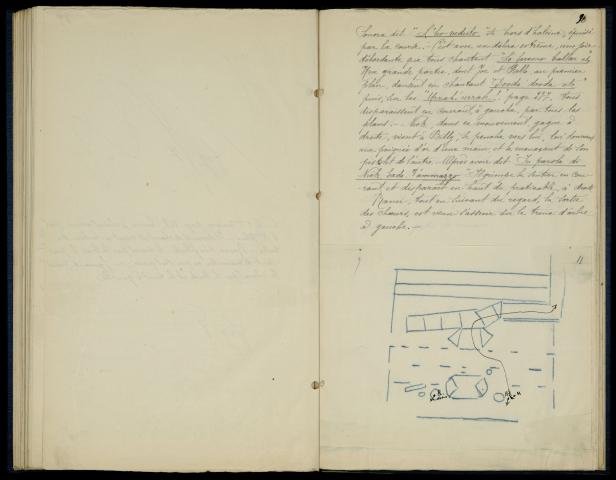 Sonora dit "L'ho veduto" et hors d'haleine, épuisé
par la course. — C'est avec un délire extrême, une joie
débordante que tous chantent "Lo faremo ballar etc"
Une grande partie, dont Joe et Bello au premier
plan, dansent en chantant "Dooda dooda etc"
puis, sur les "Urrah! urrah!" page 277, tous
disparaissent en courant, à gauche, par tous les
plans. — Nick, dans ce mouvement, gagne à
droite, vient à Billy, se penche vers lui, lui donnant
une poignée d'or d'une main, et le menaçant de son
pistolet de l'autre. — Après avoir dit "In parola di
Nick bada t'ammazzo" il grimpe le sentier en cou-
rant et disparaît en haut du praticable, à droite
Rance, tout en suivant du regard, la sortie
des chœurs, est venu s'asseoir sur le tronc d'arbre
à gauche. —
11